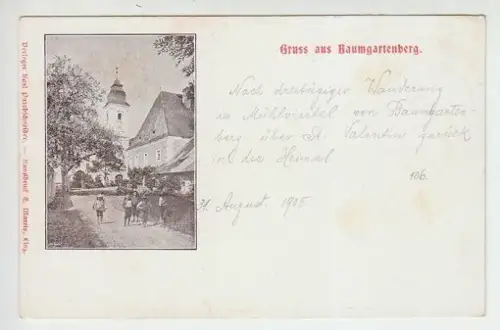 Gruss aus Baumgartenberg.
Nach dreitägiger Wanderung
im Mühlviertel von Baumgarten-
berg über St. Valentin zurück
in die Heimat
106.
31. August 1905
Verleger Karl